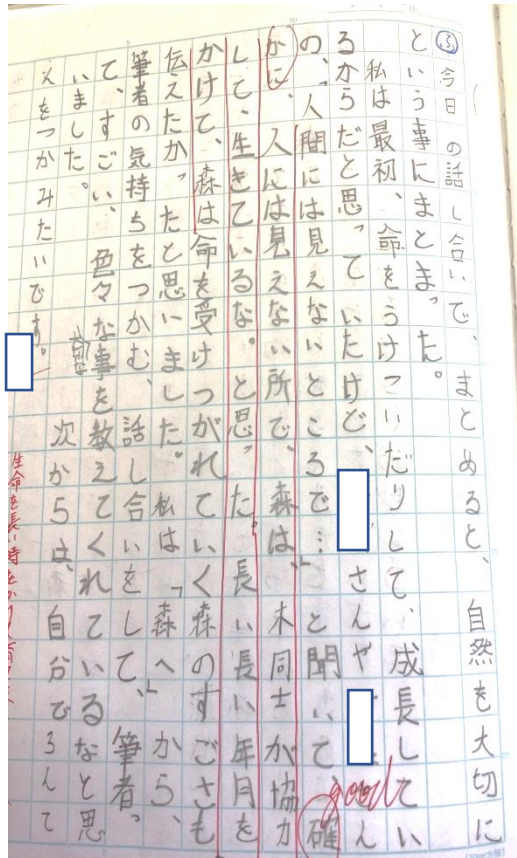 ㋫今日の話し合いで、まとめると、自然を大切に
という事にまとまった。
私は最初、命をうけついだりして、成長してい
るからだと思っていたけど、さんや
の、「人間には見えないところで…」と聞いて確
かに、人には見えない所で、森は、木同士が協力
して、生きているな。と思った。長い長い年月を
かけて、森は命を受けつがれていく森のすごさも
伝えたかったと思いました。私は「森へ」から、
筆者の気持ちをつかむ、話し合いをして、筆者っ
て、すごい、色々な事を教えてくれているなと思
いました。次からは、自分でろんて
んをつかみたいです。
good
生命を長い時をかけて